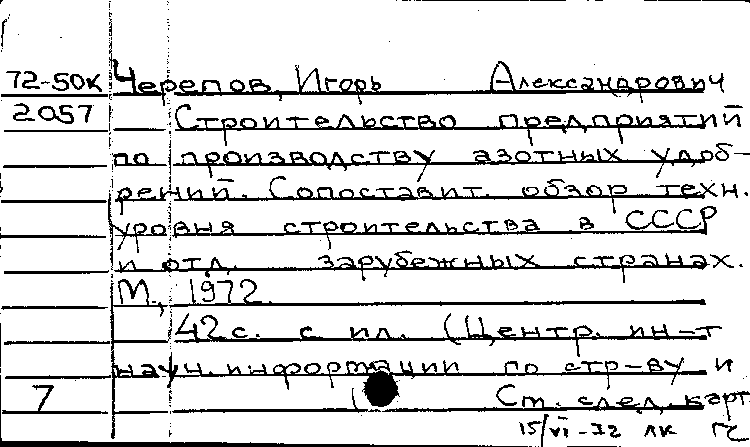 72-50к Черепов, Игорь Александрович
2057 Строительство предприятий
по производству азотных удоб-
рений. Сопоставит. обзор техн.
уровня строительства в СССР
и отд. зарубежных странах.
М., 1972.
42с. с ил. (Центр. ин-т
науч. информации по стр-ву и
7 Ст. след. карт
15/VI-72 ЛК ГС